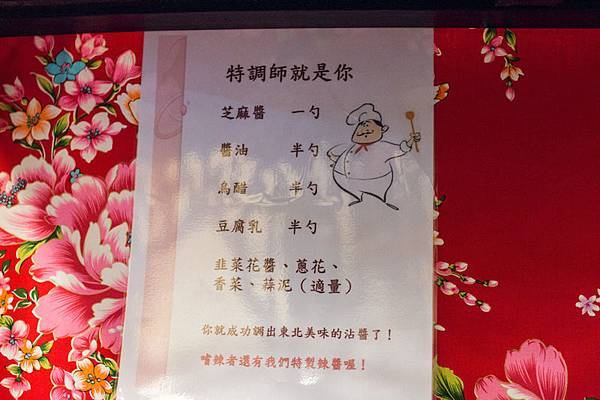 特調師就是你
芝麻醬 一勺
醬油 半勺
烏醋 半勺
豆腐乳 半勺
韭菜花醬、蔥花、
香菜、蒜泥（適量）
你就成功調出東北美味的沾醬了！
嗜辣者還有我們特製辣醬喔！